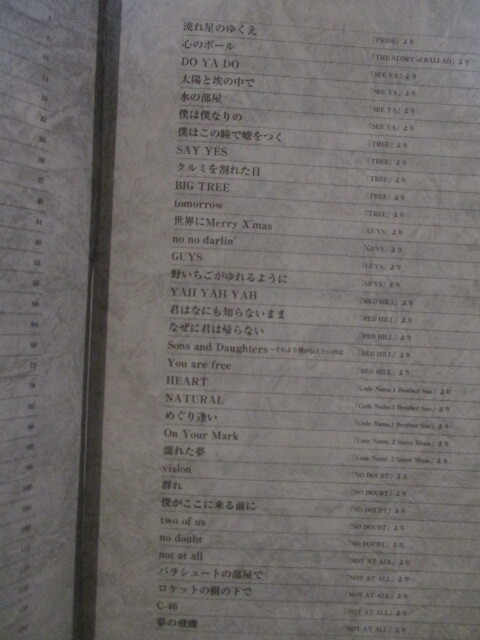 流れ星のゆくえ 「PRIDE」より
心のボール 「THE STORY of BALLAD」より
DO YA DO 「SEE YA」より
太陽と埃の中で 「SEE YA」より
水の部屋 「SEE YA」より
僕は僕なりの 「SEE YA」より
僕はこの瞳で嘘をつく 「TREE」より
SAY YES 「TREE」より
クルミを割れた日 「TREE」より
BIG TREE 「TREE」より
tomorrow 「TREE」より
世界にMerry X'mas 「GUYS」より
no no darlin' 「GUYS」より
GUYS 「GUYS」より
野いちごがゆれるように 「GUYS」より
YAH YAH YAH 「RED HILL」より
君はなにも知らないまま 「RED HILL」より
なぜに君は帰らない 「RED HILL」より
Sons and Daughters ~それより僕が伝えたいのは 「RED HILL」より
You are free 「RED HILL」より
HEART 「Code Name.1 Brother Sun」より
NATURAL 「Code Name.1 Brother Sun」より
めぐり逢い 「Code Name.1 Brother Sun」より
On Your Mark 「Code Name.2 Sister Moon」より
濡れた夢 「Code Name.2 Sister Moon」より
vision 「NO DOUBT」より
群れ 「NO DOUBT」より
僕がここに来る前に 「NO DOUBT」より
two of us 「NO DOUBT」より
no doubt 「NO DOUBT」より
not at all 「NOT AT ALL」より
パラシュートの部屋で 「NOT AT ALL」より
ロケットの樹の下で 「NOT AT ALL」より
C-46 「NOT AT ALL」より
夢の飛礫 「NOT AT ALL」より